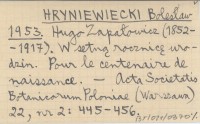 HRYNIEWIECKI Bolesław
1953. Hugo Zapałowicz (1852-
-1917). W setną rocznicę uro-
dzin. Pour le centenaire de
naissance. – Acta Societatis
Botanicorum Poloniae (Warszawa)
22, nr 2: 445-456.